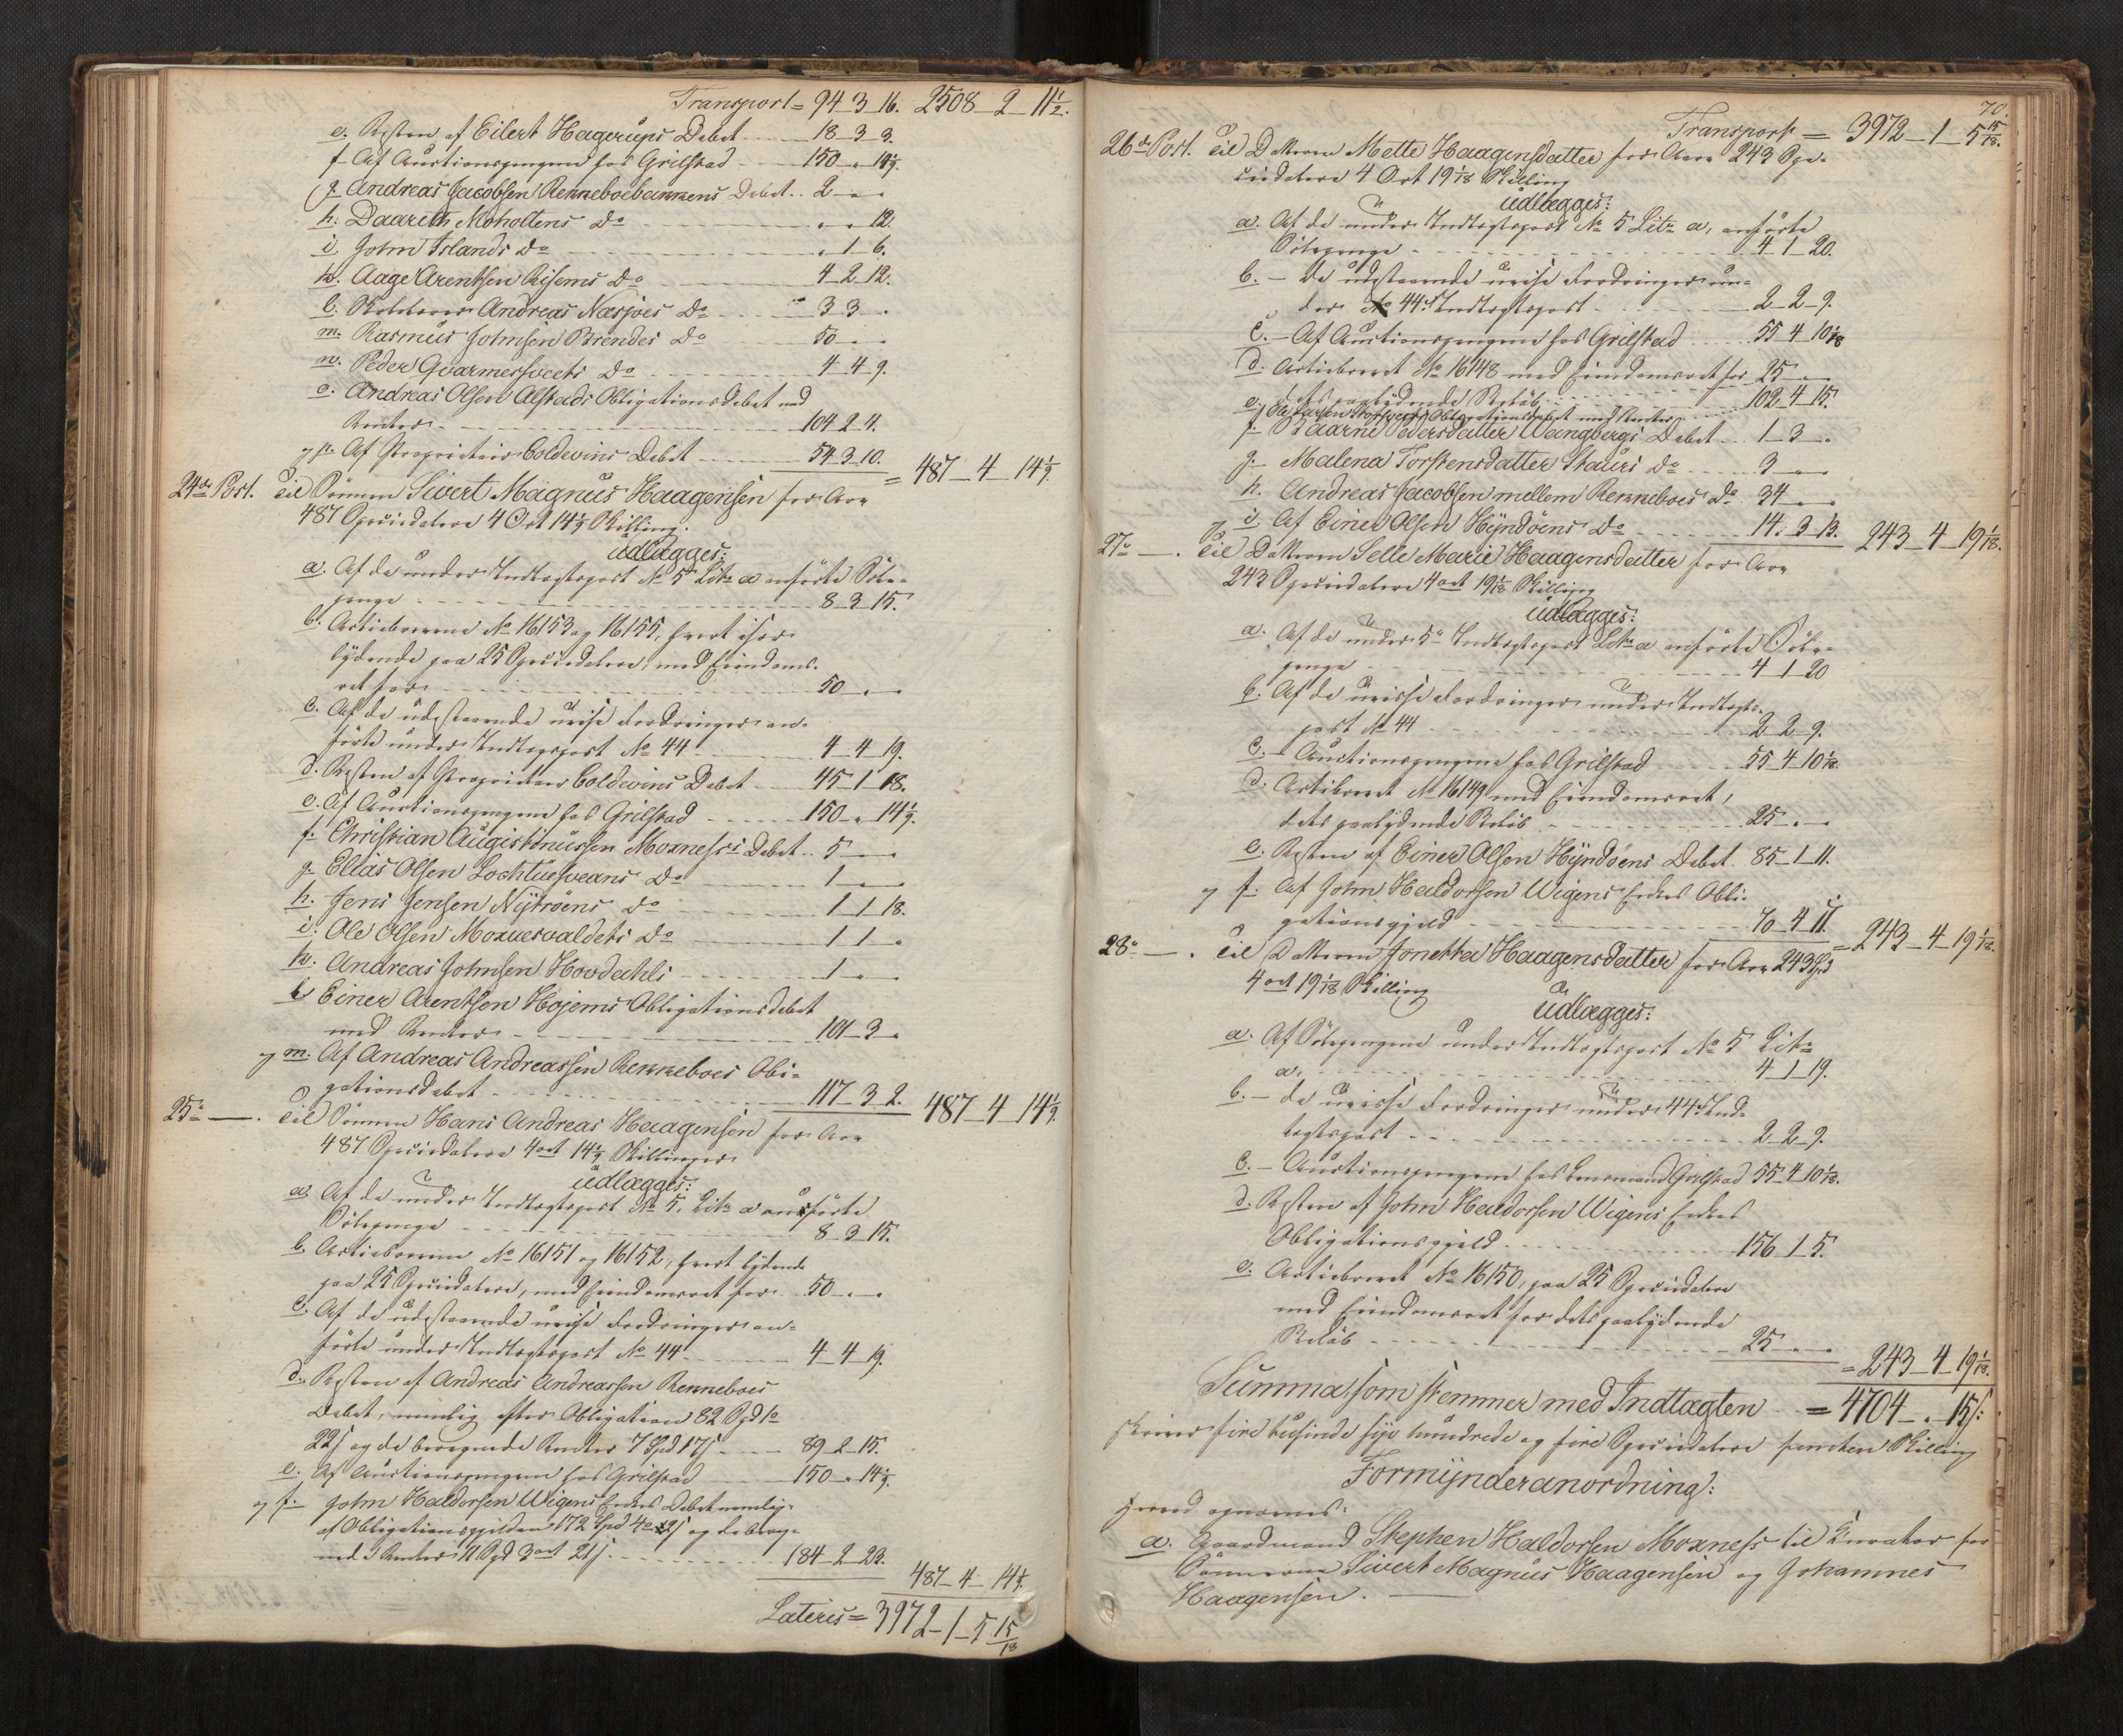 Transport = 94-3-16. 2508-2-11½.
e. Resten af Eilert Hagerups Debet 18-3-3.
f. Af Auctionspengene hos Grilstad 150-"-14 1/9.
g. Andreas Jacobsen Renneboebakkens Debet 2-"-"
h. Daareth Moholtens Do "-"-12.
i. John Islands Do "-1-6.
k. Aage Arentsen Risems Do 4-2-12.
l. Andreas Næsjoes Do 3-3-"
m. Rasmus Johnsen Brendes Do 50-"-"
n. Peder Qvarmesveets Do 4-4-9.
o. Andreas Olsen Alstads Obligationsdebet med
Renter 104-2-4.
og p. Af Proprietair Coldevins Debet 54-3-10. = 487-4-14 1/9.
24de Post. Til Sönnen Sivert Magnus Haagensen for Arv
487 Speciedalere 4 Ort 14 1/9 Skilling.
udlægges:
a. Af de under Indtægtspost No 5 Litr a anförte Söle-
penge 8-3-15.
b. Actiebrevene No 16153 og 16155, hvert især
lydende paa 25 Speciedalere, med Eiendoms-
ret for 50-"-"
c. Af de udestaaende uvisse Fordringer an-
förte under Indtægtspost No 44 4-4-19.
d. Resten af Proprietair Coldevins Debet 45-1-18.
e. Af Auctionspengene hos Grilstad 150-"-14 1/9.
f. Christian Augistinussen Moxness's Debet 5-"-"
g. Elias Olsen Lochtuesveans Do 1-"-"
h. Jens Jensen Nytröens Do 1-1-18.
i. Ole Olsen Moxuesvaldets Do 1-1-"
k. Andreas Johnsen Hovdahls 1-"-"
l. Einer Arentsen Hojems Obligationsdebet
med Renter 101-3-"
og m. Af Andreas Andreassen Renneboes Obi-
gationsdebet 117-3-2. 487-4-14 1/9.
25de —. Til Sönnen Hans Andreas Haagensen for Arv
487 Speciedalere 4 ort 14 1/9 Skillinger
udlægges:
a. Af de under Indtægtspost No 5. Litr a anförte
Sölepenge 8-3-15.
b. Actiebrevene No 16151 og 16152, hvert lydende
paa 25 Speciedalere, med Eiendomsret for 50-"-"
c. Af de udestaaende uvisse Fordringer an-
förte under Indtægtspost No 44 4-4-19.
d. Resten af Andreas Andreassen Renneboes
Debet, nemlig efter Obligation 82 Spd 1o
22s og de beregnede Renter 7 Spd 17s 89-2-15.
e. Af Auctionspengene hos Grilstad 150-"-14 1/9.
og f. John Haldorsen Wigens Enkes Debet nemlig
af Obligationsgjelden 172 Spd 4o 2s og bereg-
ned Renter 11 Spd 3 ort 21s 184-2-23.
487-4-14 1/9.
Lateris = 3972-1-5 15/18
70.
Transport = 3972-1-5 15/18.
26de Post. Til Datteren Mette Haagensdatter for Arv 243 Spe-
ciedalere 4 Ort 19 1/18 Skilling
udlægges:
a. Af de under Indtægtspost No 5 Litr a, anförte
Sölepenge 4-1-20.
b. — de udestaaende uvisse Fordringer un-
der 44de Indtægtspost 2-2-9.
c. — Af Auctionspengene hos Grilstad 55-4-10 1/18
d. Actiebrevet No 16148 med Eiendomsret for 25-"-"
dets paalydende Belöb
e. Obligationsdebet med Renter 102-4-15.
f. Baarni Pedersdatter Wangbergs Debet 1-3-"
g. Malena Torstensdatter Staurs Do 3-"-"
h. Andreas Jacobsen mellem Renneboes Do 34-"-"
og i. Af Einer Olsen Hyndöens Do 14-3-13. 243-4-19 1/18.
27de —. Til Datteren Selle Marie Haagensdatter for Arv
243 Speciedalere 4 ort 19 1/18 Skilling
udlægges:
a. Af de under 5te Indtægtspost Litr a anförte Söle-
penge 4-1-20
b. Af de uvisse Fordringer under Indtægts-
post No 44 2-2-9.
c. — Auctionspengene hos Grilstad 55-4-10 1/18.
d. Actiebrevet No 16149 med Eiendomsret,
dets paalydende Belöb 25-"-"
e. Resten af Einer Olsen Hyndöens Debet 85-1-11.
og f. Af John Haldorsen Wigens Enkes Obli-
gationsgjeld 70-4-11. = 243-4-19 1/18.
28de —. Til Datteren Jonetta Haagensdatter for Arv 243 Spd
4 ort 19 1/18 Skilling
udlægges:
a. Af Sölepengene under Indtægtspost No 5 Litr
a, 4-1-19.
b. — de uvisse Fordringer under 44de Ind-
tægtspost 2-2-9.
c. — Auctionspengene hos Lensmand Grilstad 55-4-10 1/18.
d. Resten af John Haldorsen Wigens Enkes
Obligationsgjeld 156-1-5.
e. Actiebrevet No 16150, paa 25 Speciedalere
med Eiendomsret for dets paalydende
Belöb 25-"-"
= 243-4-19 1/18.
Summa, som stemmer med Indtægten = 4704-"-15s:
skriver fire tusinde syv hundrede og fire Speciedalere femten Skilling
Formynderanordning:
hvorved opnævnes:
a. Gaardmand Stephen Haldorsen Moxness til Curator for
Sönnerne Sivert Magnus Haagensen og Johannes
Haagensen.